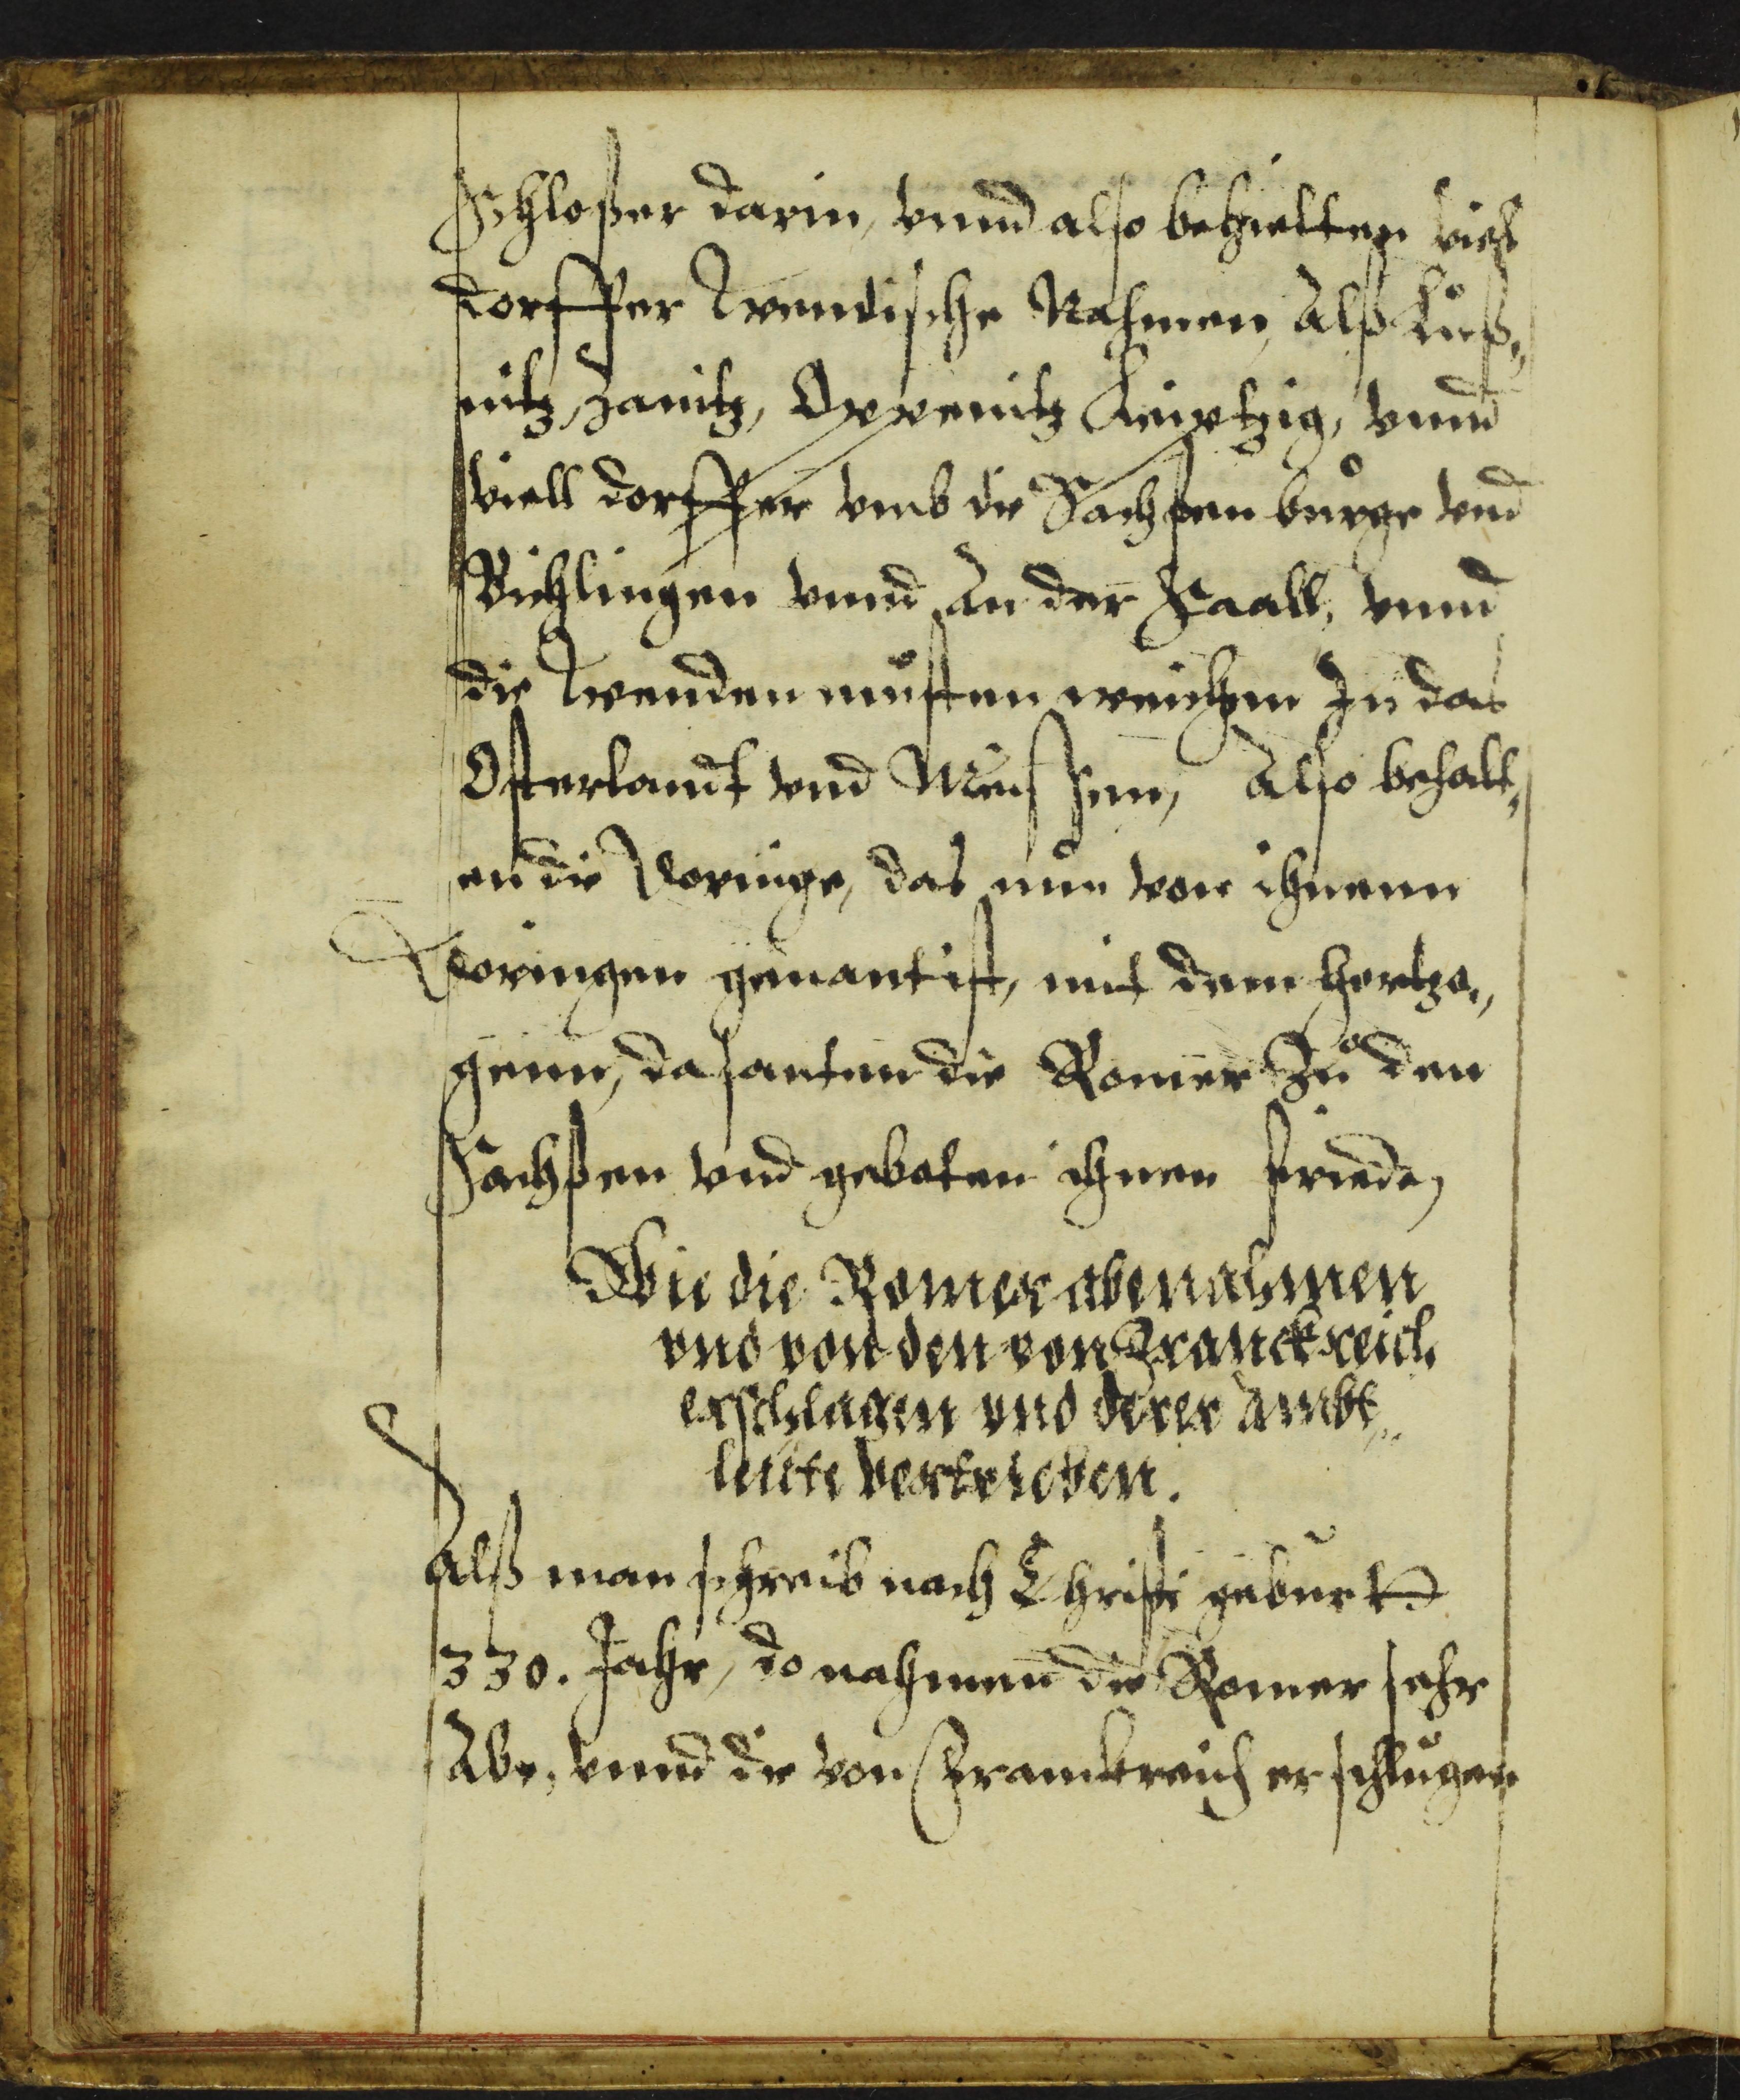 Schloßer darin, vnnd also behielten viel
dorffer Wendische Nahmen, Alß Luß,,
nitz, Janitz, Oppenitz Leiptzig, vnnd
viell dorffer vmb die Sachßen burge vnd
Bichlingen vnnd An der Saall, vnnd
die Wenden musten weichen In das
Osterlandt vnd Meisßen, Also behalt,,
en die Doringe, das nun von ihnenn
Doringen genant ist, mit dem hertzo,,
genn, da santen die Romer Zu den
Sachßen vnd geboten ihnen friede,
Wie die Romer abenahmen
vnd von den von Franckreich
erschlagen vnd derer Ambt,,
leute vertrieben.
Alß man schreib nach Christi geburt
330. Jahr, do nahmen die Romer sehr
Abe, vnnd die von Franckreich erschlugen